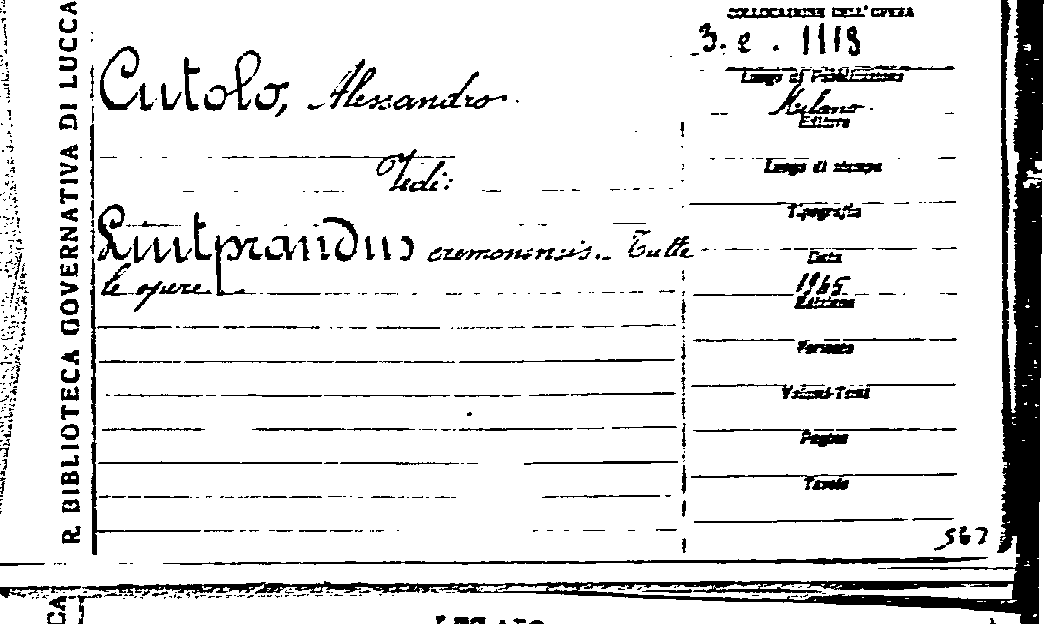 R. BIBLIOTECA GOVERNATIVA DI LUCCA
Cutolo, Alessandro.
Vedi:
Liutprandus cremonensis. Tutte
le opere.
COLLOCAZIONE DELL'OPERA
3. e. 1113
Luogo di Pubblicazione
Milano.
Editore
Luogo di stampa
Tipografia
Data
1945
Edizione
Formato
Volumi-Tomi
Pagine
Tavole
567
CA